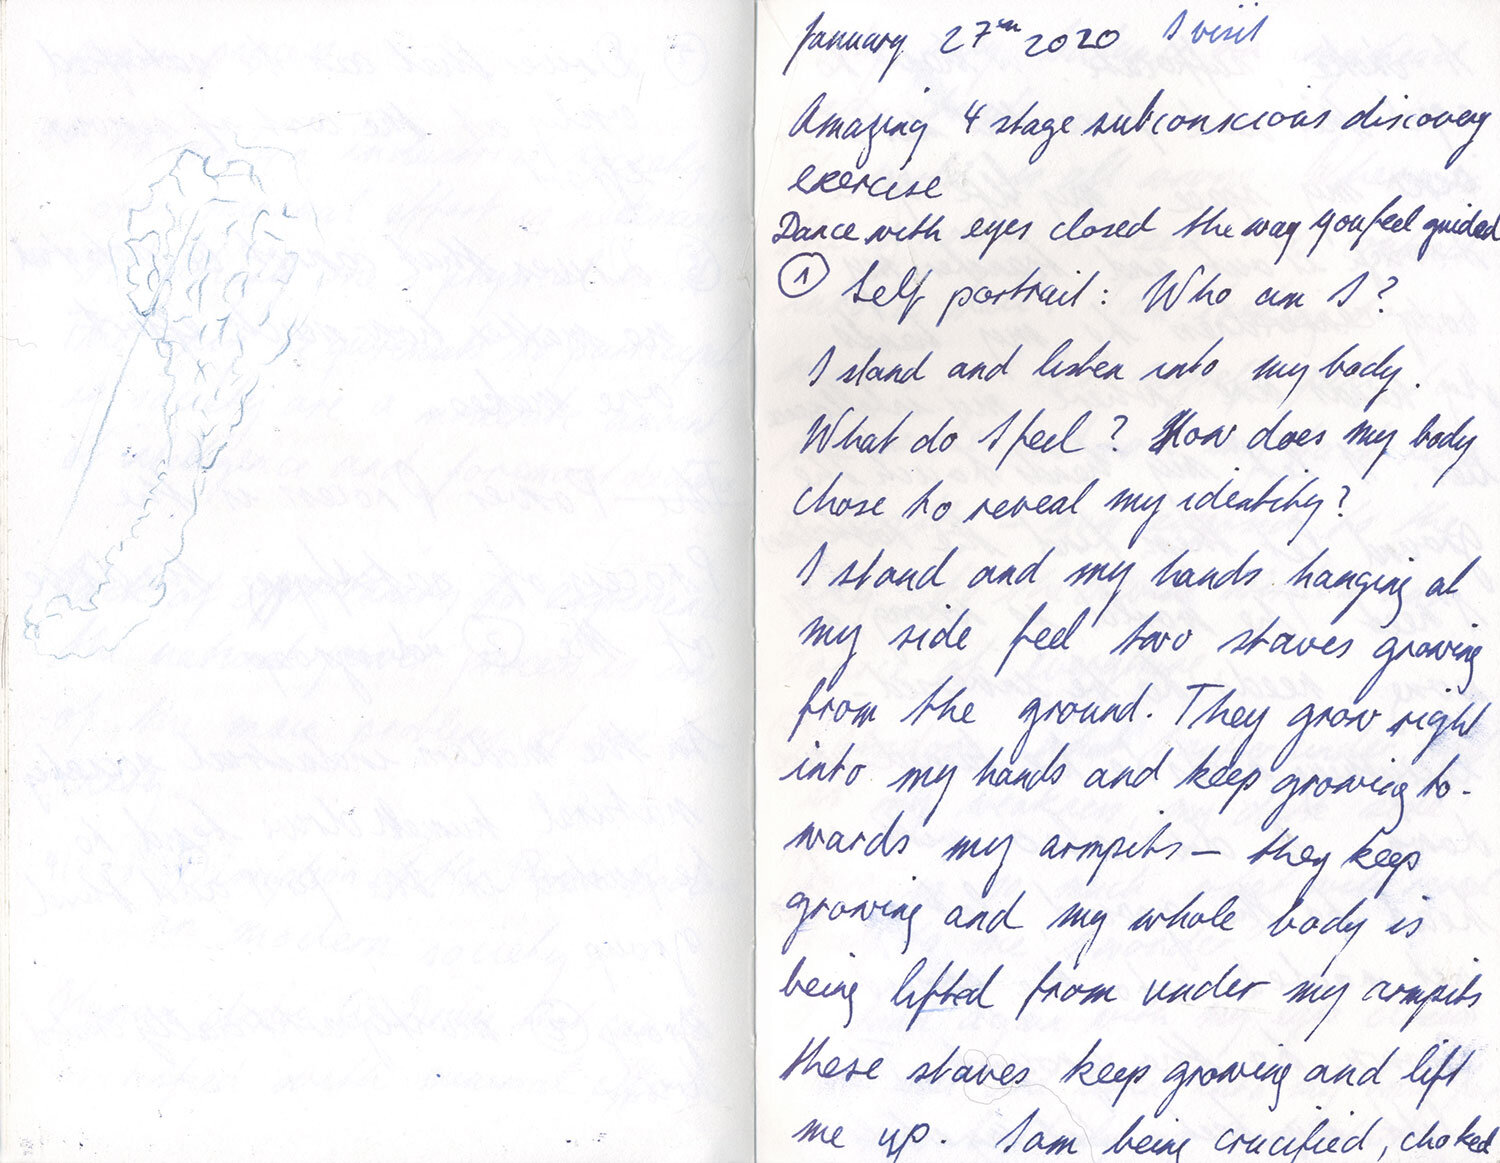 January 27th 2020 I visit
Amazing 4 stage subconscious discovery
exercise
Dance with eyes closed the way you feel guided
1 Self portrait: Who am I?
I stand and listen into my body.
What do I feel? How does my body
chose to reveal my identity?
I stand and my hands hanging at
my side feel two staves growing
from the ground. They grow right
into my hands and keep growing to-
wards my armpits – they keep
growing and my whole body is
being lifted from under my armpits
these staves keep growing and lift
me up. I am being crucified, choked